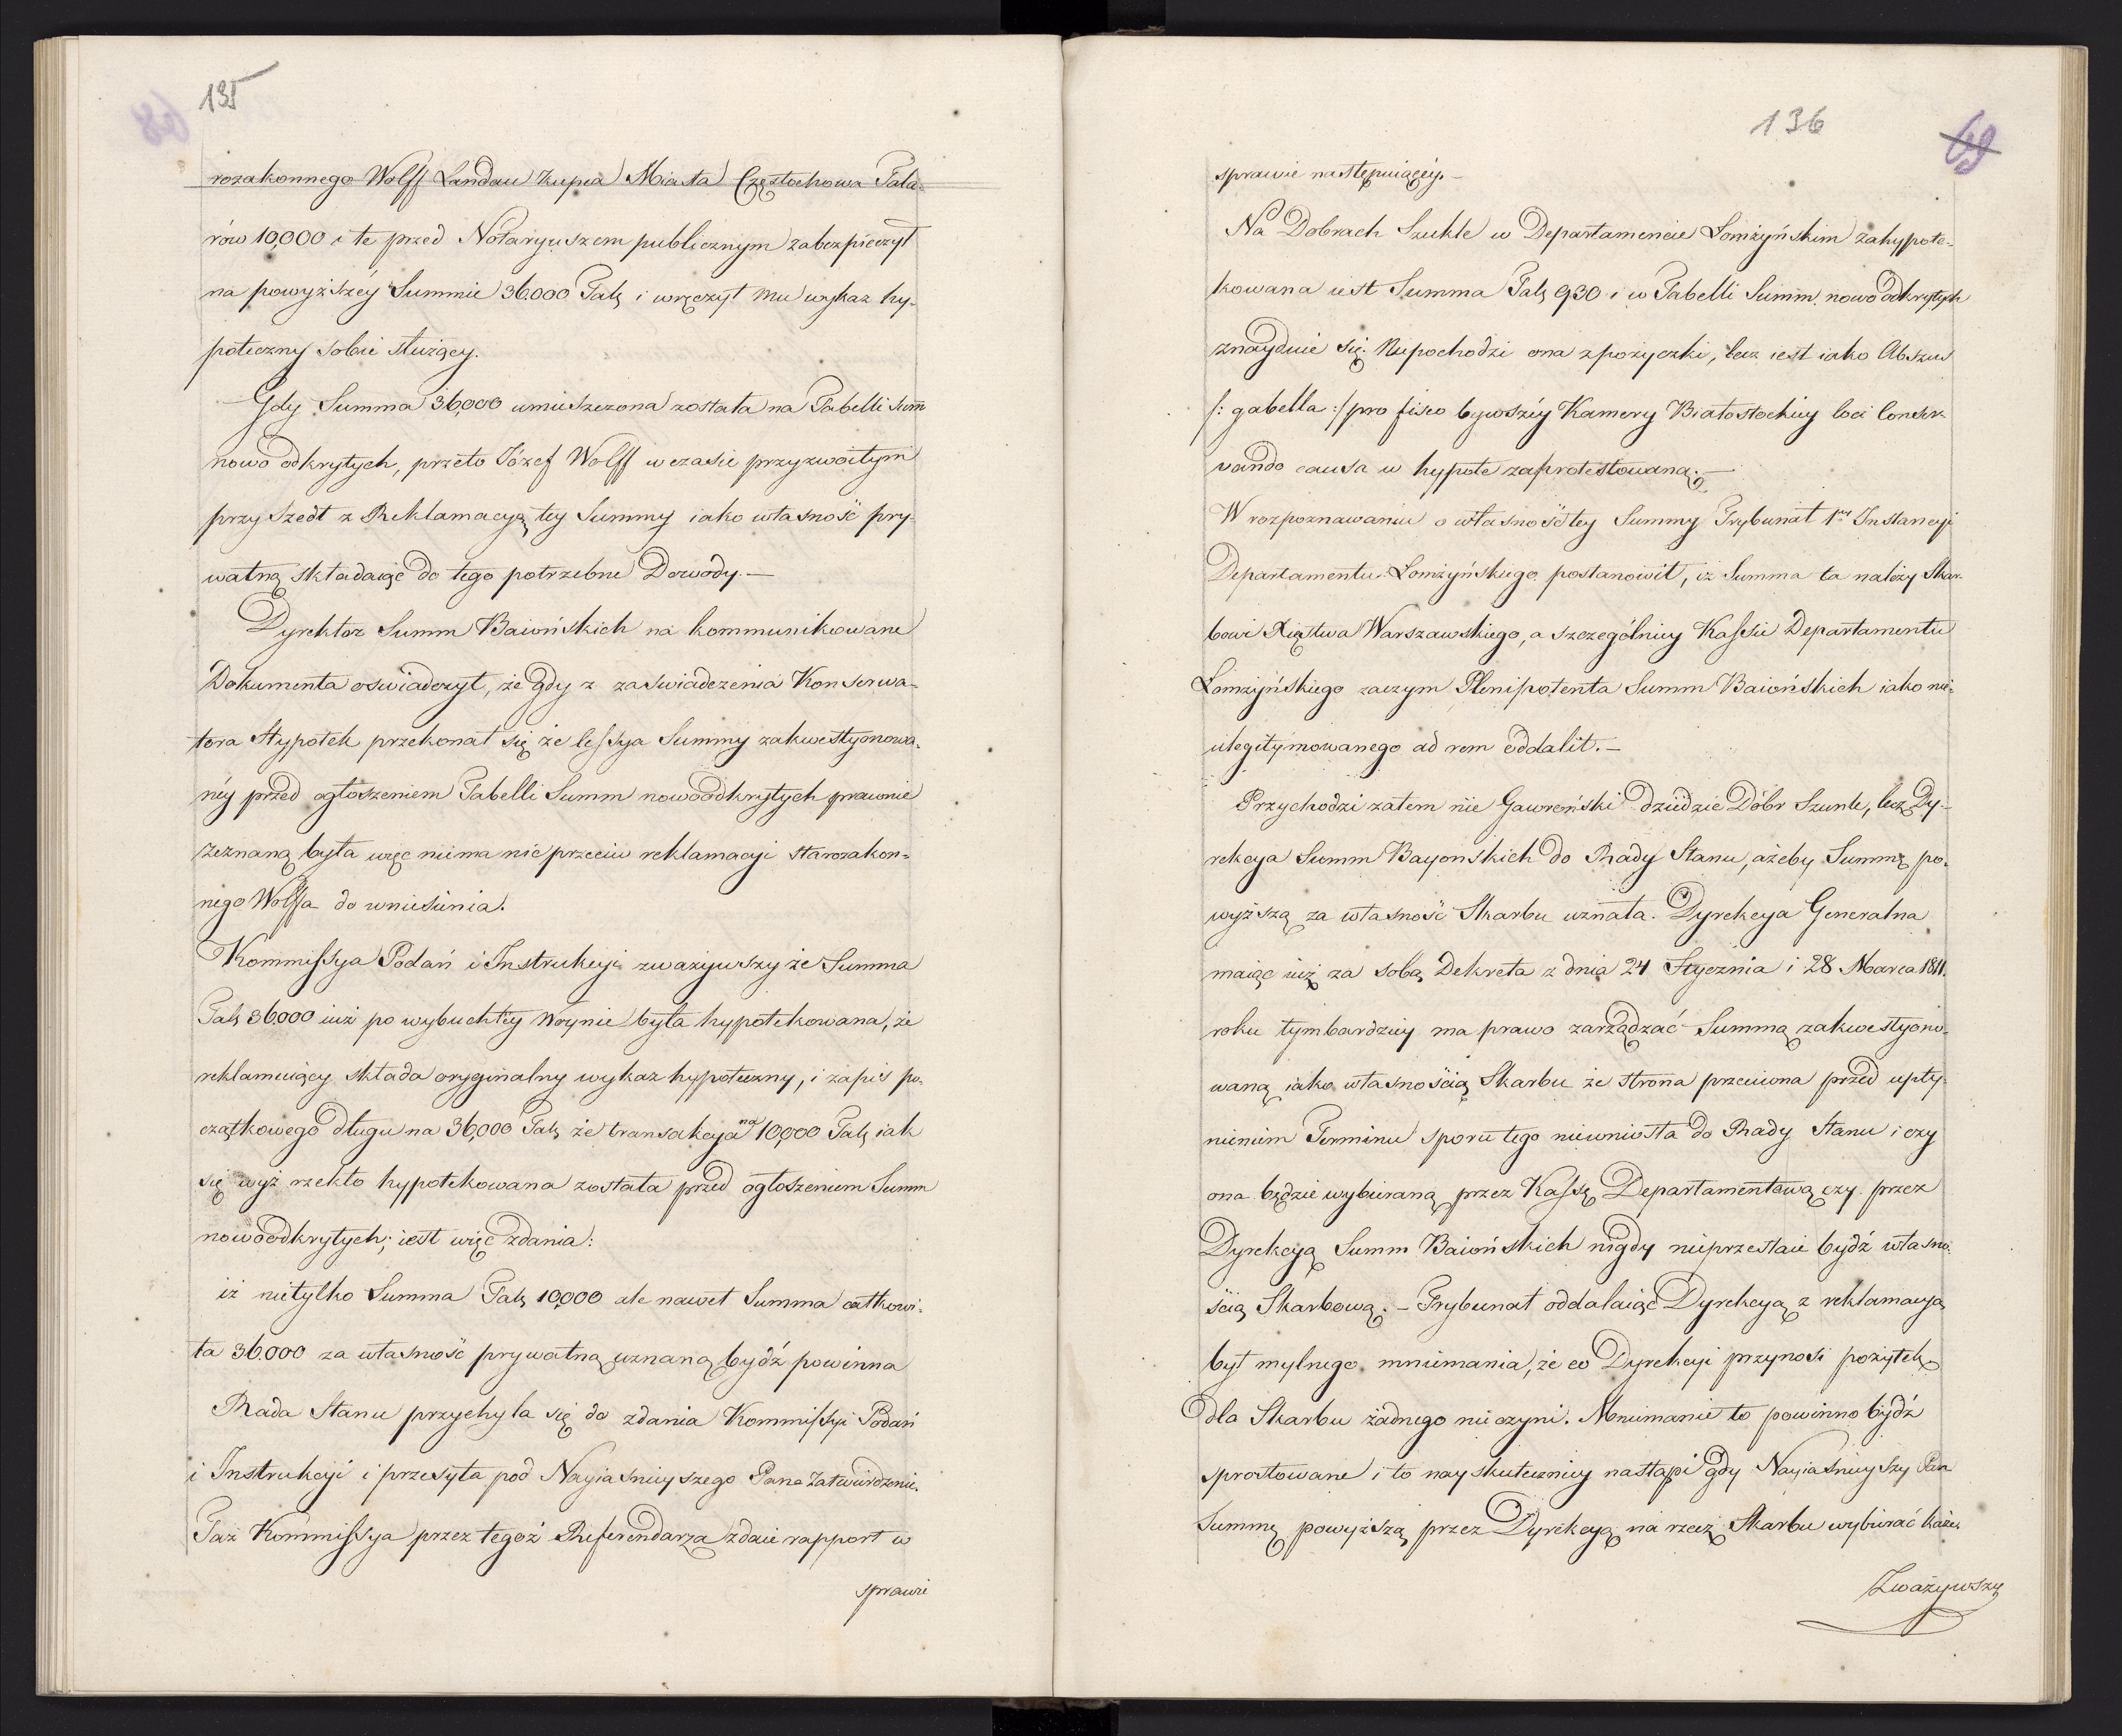 135
rozakonnego Wolff Landau kupca Miasta Częstochowa Tala-
rów 10,000 i te przed Notaryuszem publicznym zabezpieczył
na powyższéy Summie 36.000 Tal. i wręczył mu wykaz hy-
poteczny sobie służący.
Gdy Summa 36,000 umieszczona została na Tabelli Sum̄
nowo odkrytych, przeto Józef Wolff w czasie przyzwoitym
przyszedł z Reklamacyą tey Summy iako własność pry-
watną składaiąc do tego potrzebne Dowody.—
Dyrektor Summ Baiońskich na kommunikowane
Dokumenta oświadczył, że gdy z zaświadczenia Konserwa-
tora Hypotek przekonał się że Cessya Summy zakwestyonowa-
néy przed ogłoszeniem Tabelli Summ nowoodkrytych prawnie
zeznaną była więc niema nic przeciw reklamacyi starozakon-
nego Wolffa do wniesienia.
Kommissya Podań i Instrukcyi zważywszy że Summa
Tal. 36.000 iuż po wybuchłéy Woynie była hypotekowana, że
reklamuiący składa oryginalny wykaz hypoteczny, i zapis po-
czątkowego długu na 36,000 Tal. że transakcya na 10,000 Tal. iak
się wyż rzekło hypotekowana została przed ogłoszeniem Summ
nowoodkrytych; iest więc zdania:
iż nietylko Summa Tal. 10,000 ale nawet Summa całkowi-
ta 36.000 za własność prywatną uznaną bydź powinna
Rada Stanu przychyla się do zdania Kommissyi Podań
i Instrukcyi i przesyła pod Nayiaśnieyszego Pana Zatwierdzenie.
Taż Kommissya przez tegoż Referendarza zdaie rapport w
sprawie
136
69
sprawie następuiącéy.—
Na Dobrach Szukle w Departamencie Łomżyńskim zahypote-
kowana iest Summa Tal. 930 i w Tabelli Summ. nowo odkrytych
znayduie się. Niepochodzi ona z pożyczki, lecz iest iako Abszus
/: gabella :/ pro fisco bywszéy Kamery Białostockiey loci conser-
vando causa w hypote zaprotestowaną.—
W rozpoznawaniu o własność tey Summy Trybunał 1ey Instancyi
Departamentu Łomżyńskiego postanowił, iż Summa ta należy Skar-
bowi Xięstwa Warszawskiego, a szczególniey Kassie Departamentu
Łomżyńskiego zaczym Plenipotenta Summ Baiońskich iako nie-
ulegitymowanego ad rem oddalił.—
Przychodzi zatem nie Gawroński dziedzic Dóbr Szunle, lecz Dy-
rekcya Summ Bayonskich do Rady Stanu, ażeby Summę po-
wyższą za własność Skarbu uznała. Dyrekcya Generalna
maiąc iuż za sobą Dekreta z dnia 24 Stycznia i 28 Marca 1811.
roku tymbardziey ma prawo zarządzać Summą zakwestyono-
waną iako własnością Skarbu że strona przeciwna przed upły-
nieniem Terminu sporu tego niewniosła do Rady Stanu i czy
ona będzie wybieraną przez Kassę Departamentową czy przez
Dyrekcyą Summ Baiońskich nigdy nieprzestaie bydź własno-
ścią Skarbową.— Trybunał oddalaiąc Dyrekcyą z reklamacyą
był mylnego mniemania, że co Dyrekcyi przynosi pożytek
dla Skarbu żadnego nie czyni. Mniemanie to powinno bydź
sprostowane i to nayskuteczniey nastąpi gdy Nayiaśnieyszy Pan
Summę powyższą przez Dyrekcyą na rzecz Skarbu wybierać każe.
Zważywszy